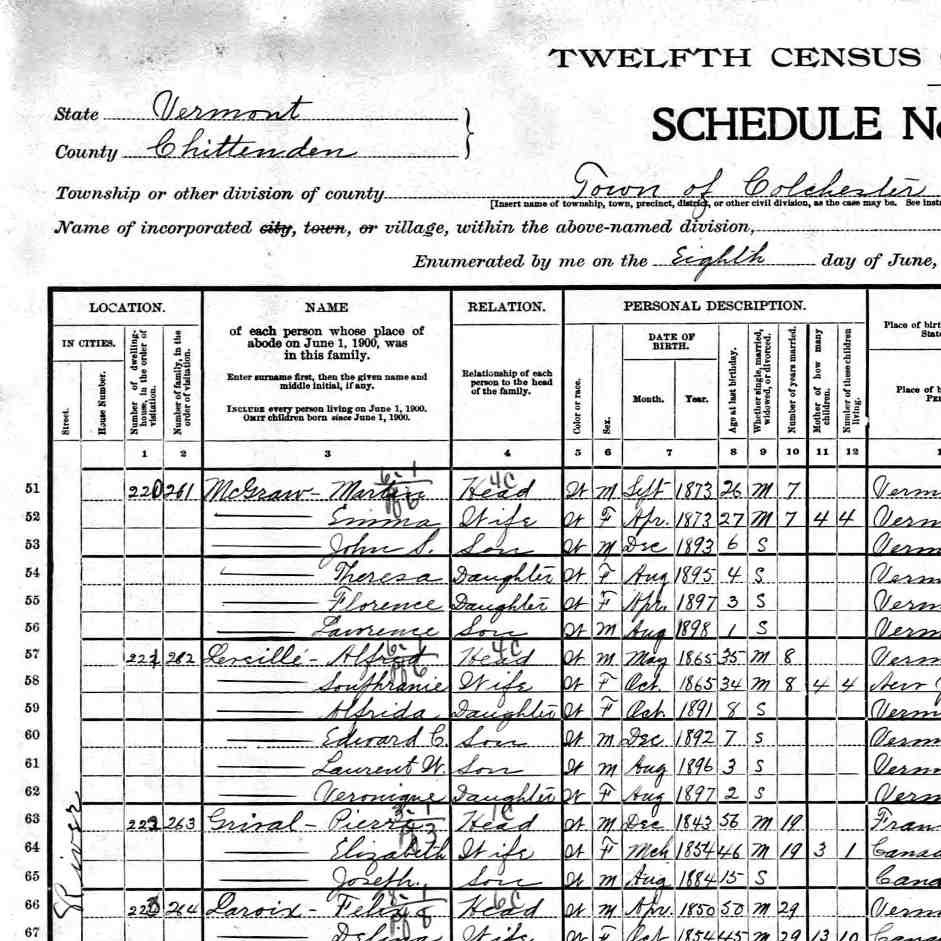 TWELFTH CENSUS
State Vermont
County Chittenden
SCHEDULE No
Township or other division of county Town of Colchester
[Insert name of township, town, precinct, district, or other civil division, as the case may be. See inst
Name of incorporated city, town, or village, within the above-named division,
Enumerated by me on the Eighth day of June,
LOCATION. NAME RELATION. PERSONAL DESCRIPTION.
IN CITIES.
Street.
House Number.
Number of dwelling-house, in the order of visitation.
Number of family, in the order of visitation.
of each person whose place of
abode on June 1, 1900, was
in this family.
Enter surname first, then the given name and
middle initial, if any.
INCLUDE every person living on June 1, 1900.
OMIT children born since June 1, 1900.
Relationship of each
person to the head
of the family.
Color or race.
Sex.
DATE OF
BIRTH.
Month. Year.
Age at last birthday.
Whether single, married, widowed, or divorced.
Number of years married.
Mother of how many children.
Number of these children living.
Place of birt
State
Place of b
1 2 3 4 5 6 7 8 9 10 11 12
51 220 261 McGraw - Martin Head W M Sept 1873 26 M 7 Verm
52 Emma Wife W F Apr. 1873 27 M 7 4 4 Verm
53 John S. Son W M Dec 1893 6 S Verm
54 Theresa Daughter W F Aug 1895 4 S Verm
55 Florence Daughter W F Apr. 1897 3 S Verm
56 Lawrence Son W M Aug 1898 1 S Verm
57 221 262 Alfred Head W M May 1865 35 M 8 Verm
58 Southranie Wife W F Oct. 1865 34 M 8 4 4 New
59 Alfrida Daughter W F Oct. 1891 8 S Verm
60 Edward C. Son W M Dec 1892 7 S Verm
61 Laurent W. Son W M Aug 1896 3 S Verm
62 Veronique Daughter W F Aug 1897 2 S Verm
63 222 263 Grival - Pierre Head W M Dec 1843 56 M 19 Fran
64 Elizabeth Wife W F Mch 1854 46 M 19 3 1 Canad
65 Joseph Son W M Aug 1884 15 S Cana
66 223 264 Laroix - Felix Head W M Apr. 1850 50 M 29 Verm
67 Delima Wife W F Oct 1854 45 M 29 13 10 Cana
River